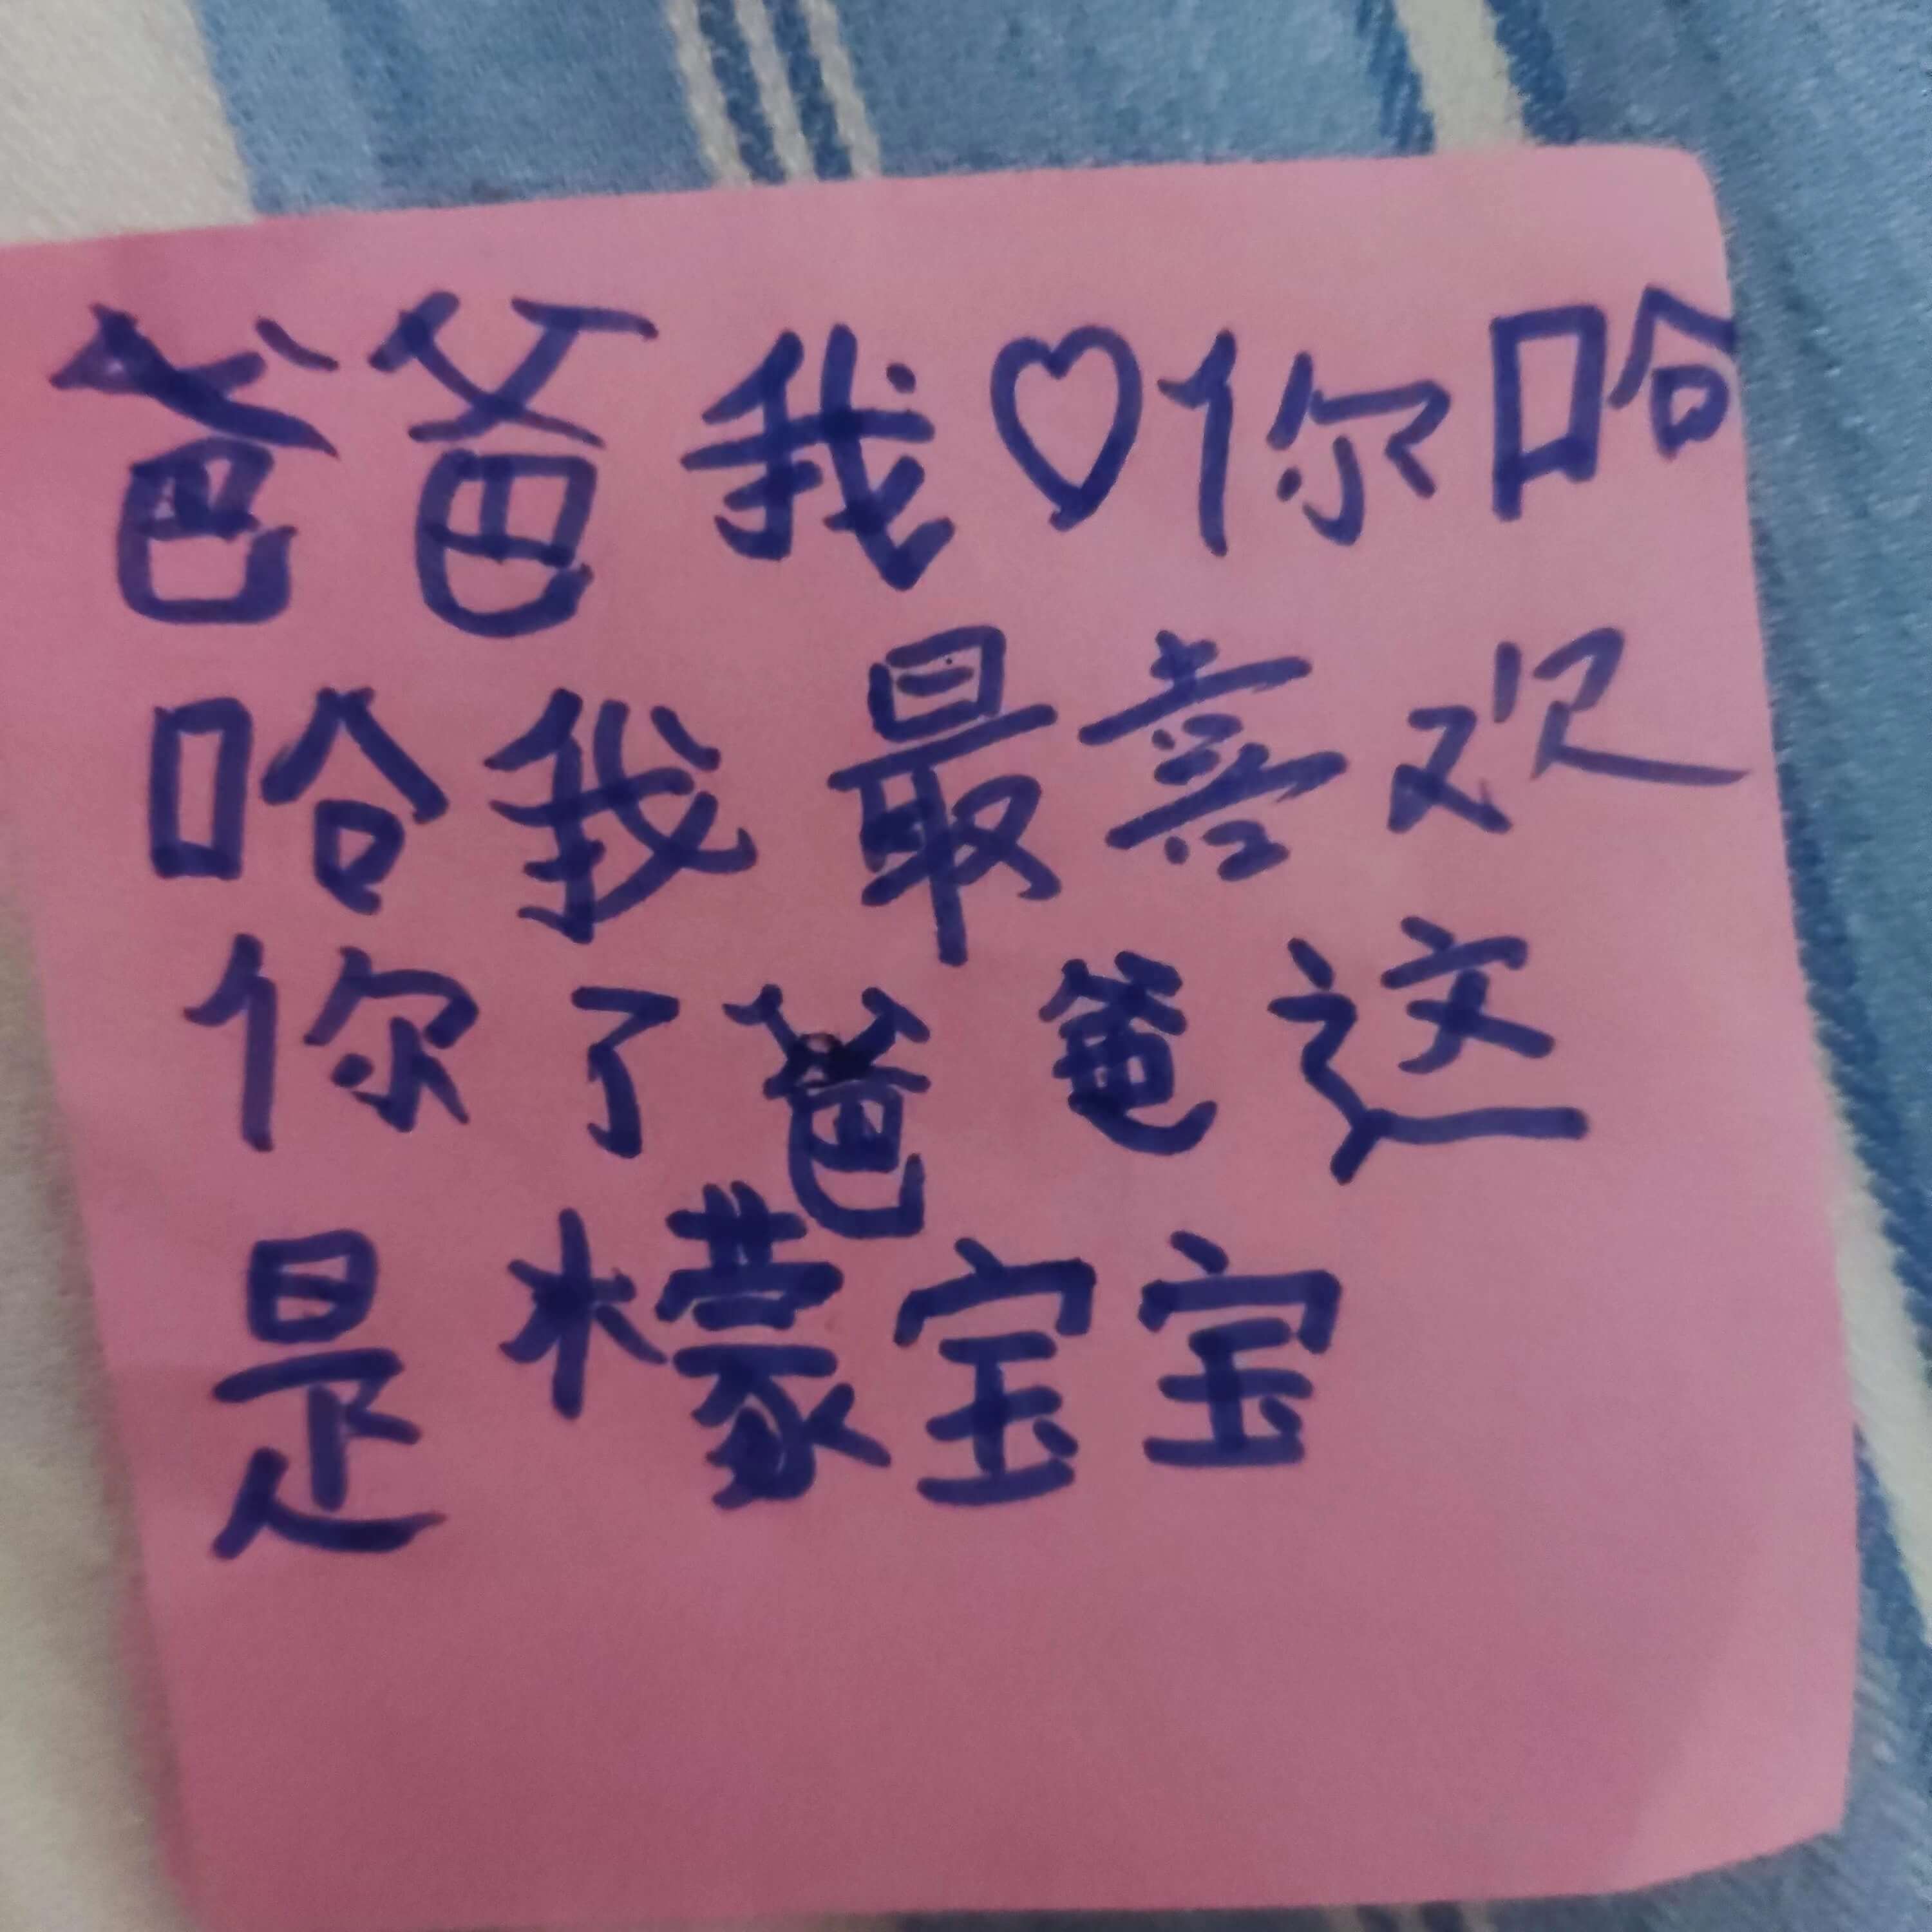 爸爸我♡你哈
哈我最喜欢
你了爸爸这
是檬宝宝